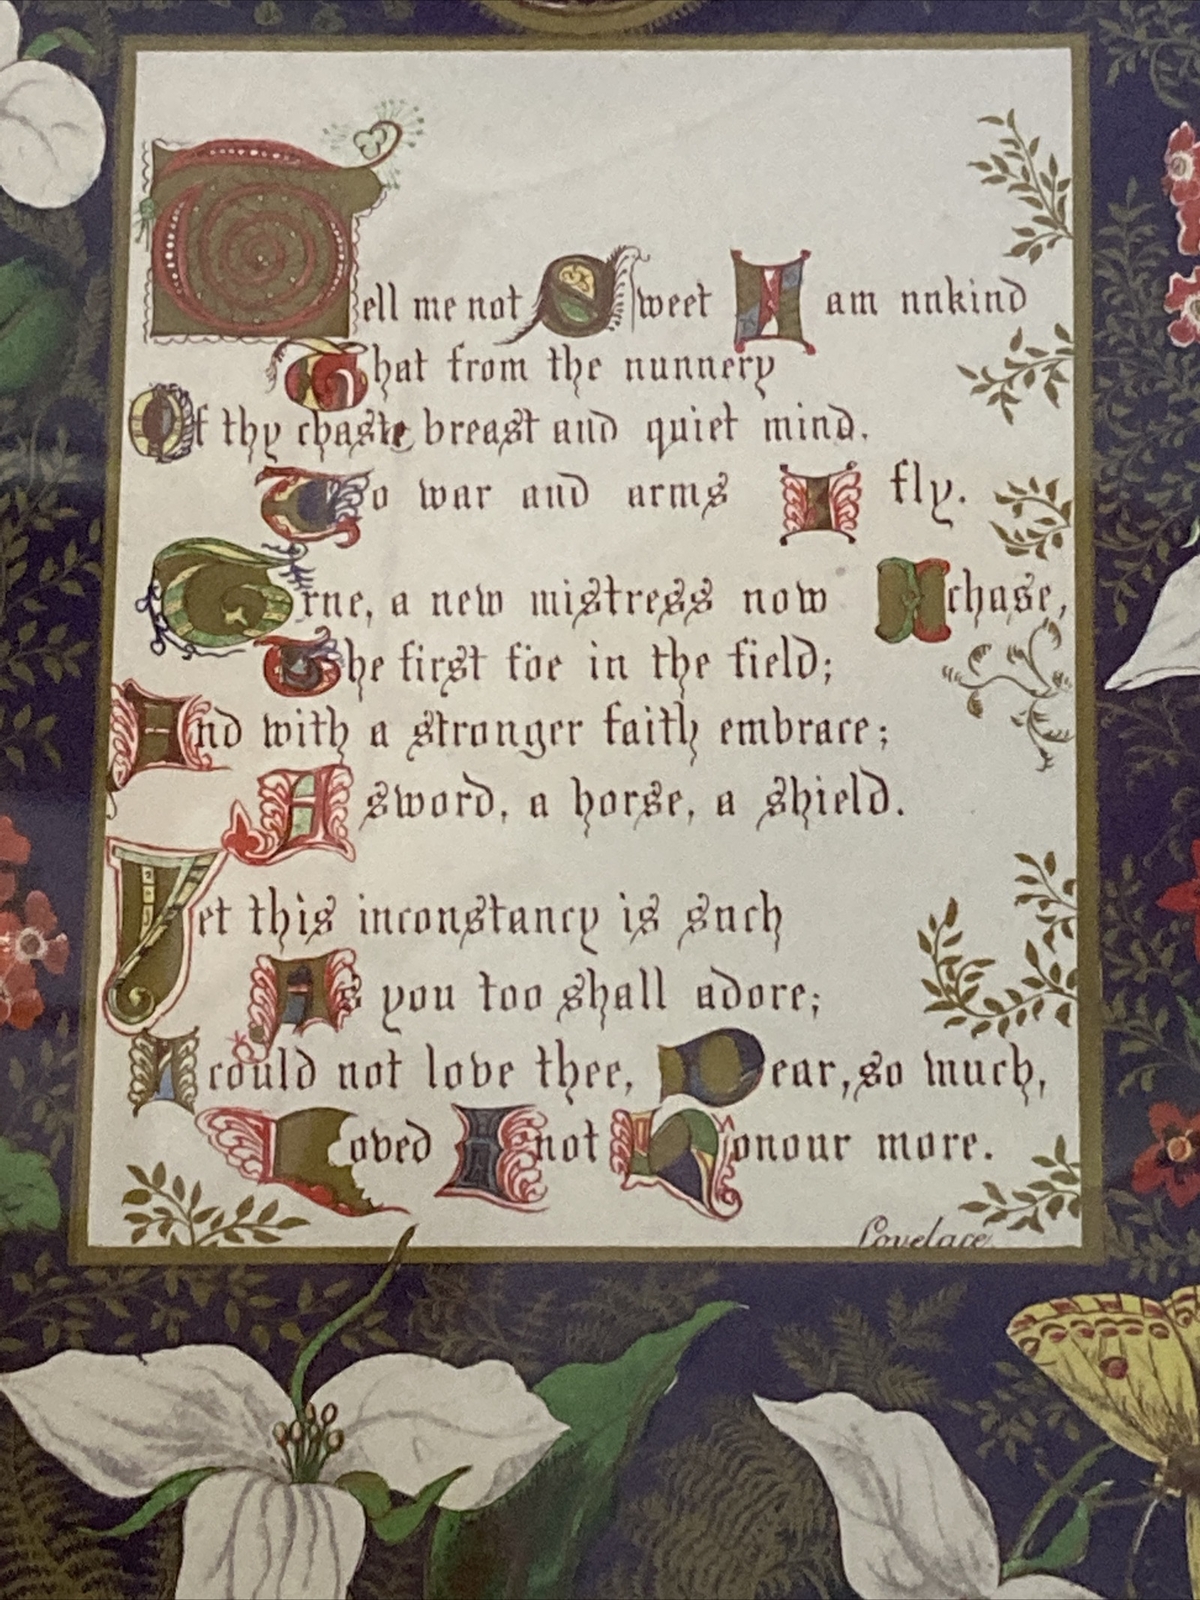 Tell me not Sweet I am unkind
That from the nunnery
Of thy chaste breast and quiet mind.
To war and arms I fly.
True, a new mistress now I chase,
The first foe in the field;
And with a stronger faith embrace;
A sword, a horse, a shield.
Yet this inconstancy is such
As you too shall adore;
I could not love thee, Dear, so much,
Loved I not Honour more.
Lovelace